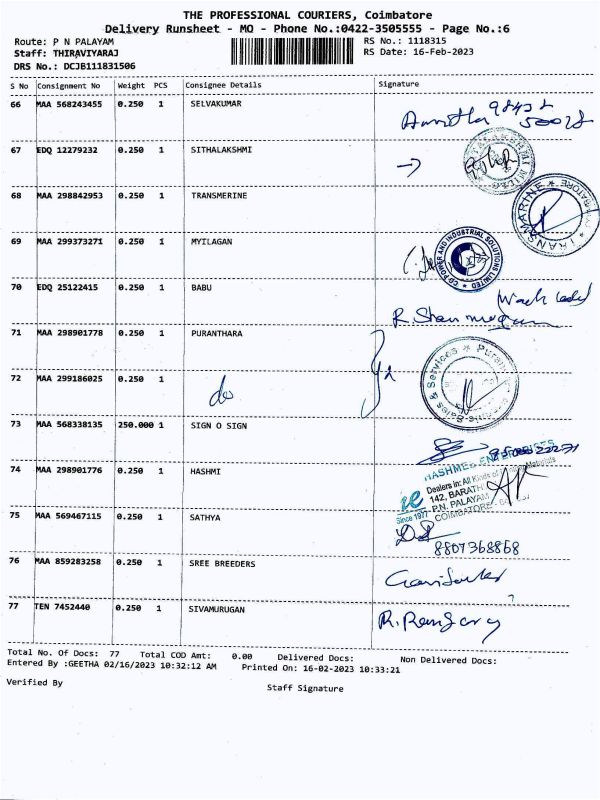 THE PROFESSIONAL COURIERS, Coimbatore
Delivery Runsheet - MO - Phone No.:0422-3505555 - Page No.:6
Route: P N PALAYAM
RS No.: 1118315
Staff: THIRAVIYARAJ
RS Date: 16-Feb-2023
DRS No.: DCJB111831506
S No Consignment No Weight PCS Consignee Details Signature
66 MAA 568243455 0.250 1 SELVAKUMAR
67 EDQ 12279232 0.250 1 SITHALAKSHMI
68 MAA 298842953 0.250 1 TRANSMERINE
TRANSMARINE
69 MAA 299373271 0.250 1 MYILAGAN
CO POWER AND INDUSTRIAL SOLUTIONS LIMITED
70 EDQ 25122415 0.250 1 BABU
71 MAA 298901778 0.250 1 PURANTHARA
Sales & Services
72 MAA 299186025 0.250 1
do
73 MAA 568338135 250.000 1 SIGN O SIGN
74 MAA 298901776 0.250 1 HASHMI
HASHME ENTERPRISES
Dealers in: All Kinds of Materials
142, BARATHI
P.N. PALAYAM
COIMBATORE
Since 1977
75 MAA 569467115 0.250 1 SATHYA
8807368868
76 MAA 859283258 0.250 1 SREE BREEDERS
77 TEN 7452440 0.250 1 SIVAMURUGAN
Total No. Of Docs: 77 Total COD Amt: 0.00 Delivered Docs: Non Delivered Docs:
Entered By :GEETHA 02/16/2023 10:32:12 AM Printed On: 16-02-2023 10:33:21
Verified By
Staff Signature